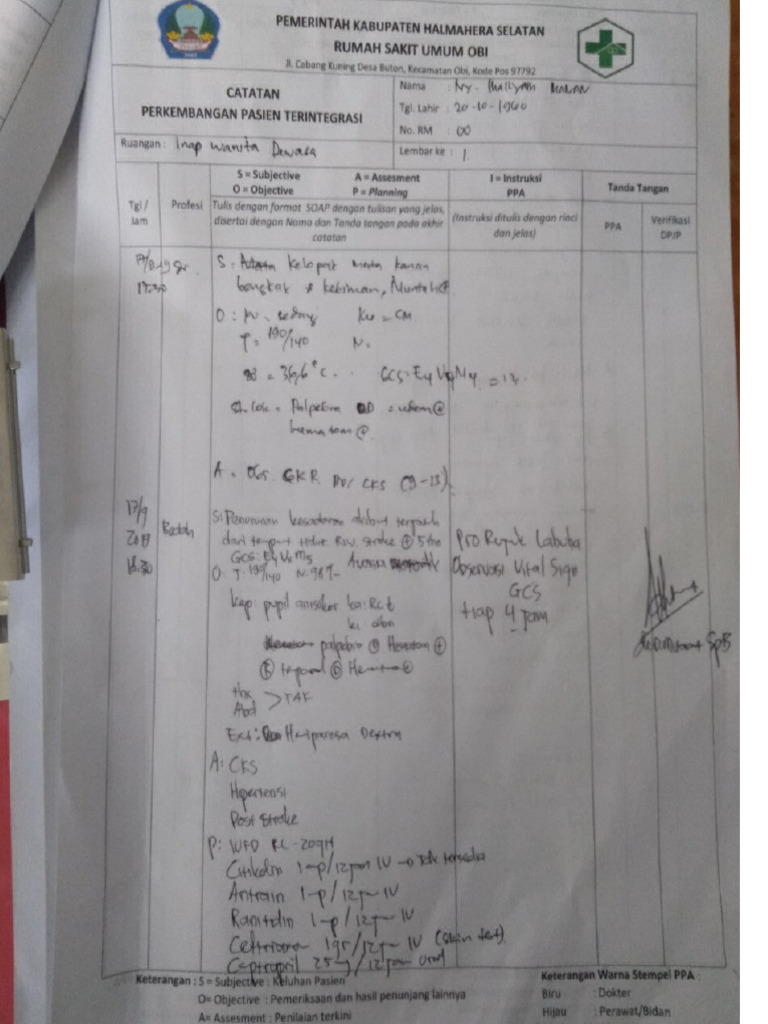 PEMERINTAH KABUPATEN HALMAHERA SELATAN
RUMAH SAKIT UMUM OBI
Jl. Cabang Kuning Desa Buton, Kecamatan Obi, Kode Pos 97792
CATATAN
PERKEMBANGAN PASIEN TERINTEGRASI
Nama : Ny.
Tgl. Lahir : 20-10-1960
No. RM : 00
Ruangan : Inap Wanita Dewasa
Lembar ke : 1.
Tgl / Jam
Profesi
S = Subjective A = Assesment
O = Objective P = Planning
Tulis dengan format SOAP dengan tulisan yang jelas, disertai dengan Nama dan Tanda tangan pada akhir catatan
I = Instruksi
PPA
(Instruksi ditulis dengan rinci dan jelas)
Tanda Tangan
PPA
Verifikasi DPJP
S : kelopak mata kanan
bengkak
O : KU = sedang = CM
T = 190/140 N =
= 36,6 °C GCS : E4
Palpebra OD
hematom
A = Obs. CKR DD/ CKS (9-13)
17/9
Bedah
S: Penurunan kesadaran
dari tempat tidur Riw. stroke ⊕ 5 thn
GCS: E4 V2 M5
O: T: 190/140 N: 96
Kep: pupil anisokor
palpebra Hematom ⊕
Thx
Abd > TAK
Ext: Hemiparesa Dextra
A: CKS
Hipertensi
Post Stroke
P: IVFD RL - 20
Citikolin 1-p/12 jam IV → tdk tersedia
Antrain 1-p/12 jam IV
Ranitidin 1-p/12 jam IV
Ceftriaxon 1 gr/12 jam IV (skin test)
Captopril 25 mg/12 jam oral
Pro Rujuk Labuha
Observasi Vital Sign
GCS
tiap 4 jam
SpB
Keterangan : S = Subjective : Keluhan Pasien
O= Objective : Pemeriksaan dan hasil penunjang lainnya
A= Assesment : Penilaian terkini
Keterangan Warna Stempel PPA :
Biru : Dokter
Hijau : Perawat/Bidan